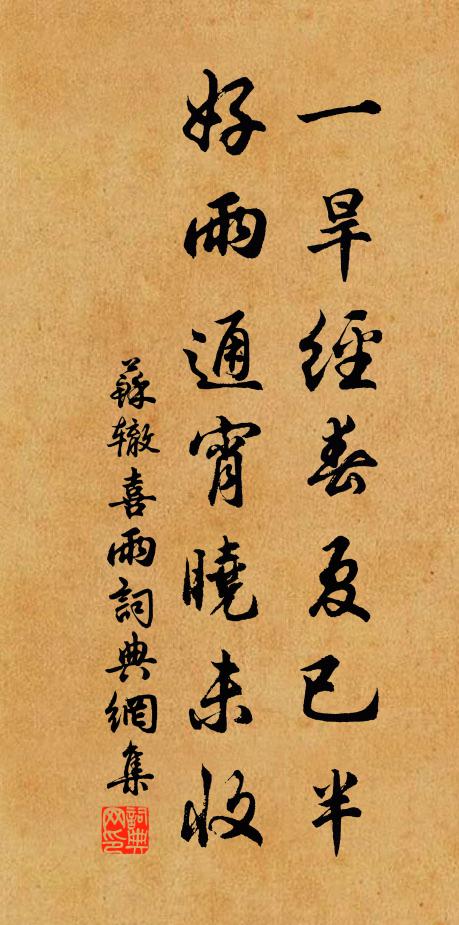 一旱經春夏已半
好雨通宵曉未收
蘇辙喜雨詞典網集
詞典网印